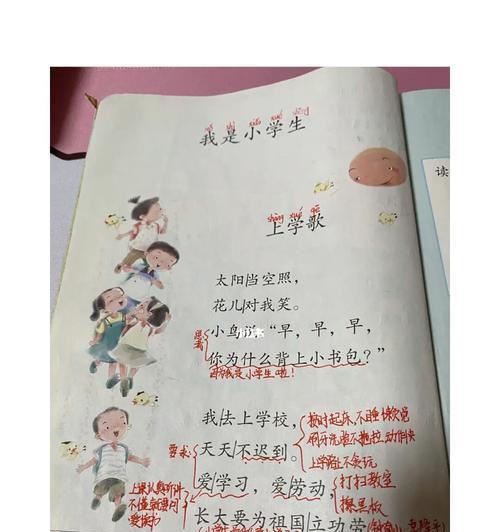 我是小学生
shàng xué gē
上学歌
太阳当空照，
花儿对我笑。
小鸟说：“早，早，早，
你为什么背上小书包？”
我去上学校，
天天不迟到。
爱学习，爱劳动，
长大要为祖国立功劳
思考
我是小学生啦！
要求：
按时起床不睡懒觉
刷牙洗脸不拖拉动作快
上学路上不贪玩
上课认真听讲
不懂就要问
爱读书
打扫教室
擦黑板
读